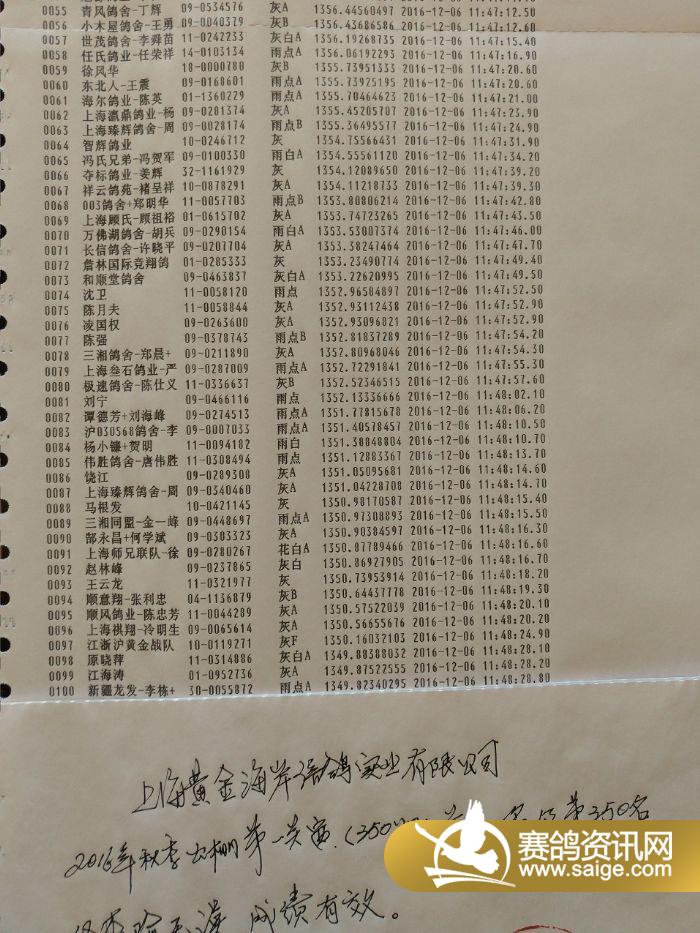 0055 青风鸽舍-丁辉 09-0534576 灰A 1356.44560497 2016-12-06 11:47:12.50
0056 小木屋鸽舍-王勇 09-0040379 灰B 1356.43686586 2016-12-06 11:47:12.60
0057 世茂鸽舍-李舜苗 11-0242233 灰白A 1356.19268735 2016-12-06 11:47:15.40
0058 任氏鸽业-任荣祥 14-0103134 雨点A 1356.06192293 2016-12-06 11:47:16.90
0059 徐风华 18-0000780 灰B 1355.73951333 2016-12-06 11:47:20.60
0060 东北人-王震 09-0168601 雨点A 1355.73925195 2016-12-06 11:47:20.60
0061 海尔鸽业-陈英 01-1360229 雨点A 1355.70464623 2016-12-06 11:47:21.00
0062 上海瀛鼎鸽业-杨 09-0201374 灰A 1355.45205707 2016-12-06 11:47:23.90
0063 上海臻辉鸽舍-周 09-0028174 雨点B 1355.36495577 2016-12-06 11:47:24.90
0064 智辉鸽业 10-0246712 灰 1354.75566431 2016-12-06 11:47:31.90
0065 冯氏兄弟-冯贺军 09-0100330 雨白A 1354.55561120 2016-12-06 11:47:34.20
0066 夺标鸽业-姜辉 32-1161929 灰 1354.12089650 2016-12-06 11:47:39.20
0067 祥云鸽苑-褚呈祥 10-0878291 灰A 1354.11218733 2016-12-06 11:47:39.30
0068 003鸽舍+郑明华 11-0057703 雨点B 1353.80806214 2016-12-06 11:47:42.80
0069 上海顾氏-顾祖裕 01-0615702 灰A 1353.74723265 2016-12-06 11:47:43.50
0070 万佛湖鸽舍-胡兵 09-0290154 雨白A 1353.53007374 2016-12-06 11:47:46.00
0071 长信鸽舍-许晓平 09-0207704 灰A 1353.38247464 2016-12-06 11:47:47.70
0072 詹林国际竞翔鸽 01-0285333 灰 1353.23490774 2016-12-06 11:47:49.40
0073 和顺堂鸽舍 09-0463837 灰白A 1353.22620995 2016-12-06 11:47:49.50
0074 沈卫 11-0058120 雨点 1352.96584897 2016-12-06 11:47:52.50
0075 陈月夫 11-0058844 灰A 1352.93112438 2016-12-06 11:47:52.90
0076 凌国权 09-0263600 灰A 1352.93096021 2016-12-06 11:47:52.90
0077 陈强 09-0378743 雨点B 1352.81837289 2016-12-06 11:47:54.20
0078 三湘鸽舍-郑晨+ 09-0211890 灰A 1352.80968046 2016-12-06 11:47:54.30
0079 上海叁石鸽业-严 09-0287009 雨点A 1352.72291841 2016-12-06 11:47:55.30
0080 极速鸽舍-陈仕义 11-0336637 灰B 1352.52346515 2016-12-06 11:47:57.60
0081 刘宁 09-0466116 雨点 1352.13336666 2016-12-06 11:48:02.10
0082 谭德芳+刘海峰 09-0274513 雨点A 1351.77815678 2016-12-06 11:48:06.20
0083 沪030568鸽舍-李 09-0007033 雨点A 1351.40578457 2016-12-06 11:48:10.50
0084 杨小镰+贺明 11-0094182 雨白 1351.38848804 2016-12-06 11:48:10.70
0085 伟胜鸽舍-唐伟胜 11-0308494 雨点 1351.12883367 2016-12-06 11:48:13.70
0086 饶江 09-0289308 灰A 1351.05095681 2016-12-06 11:48:14.60
0087 上海臻辉鸽舍-周 09-0340460 灰A 1351.04228708 2016-12-06 11:48:14.70
0088 马根发 10-0421145 灰 1350.98170587 2016-12-06 11:48:15.40
0089 三湘同盟-金一峰 09-0448697 雨点A 1350.97308893 2016-12-06 11:48:15.50
0090 郜永昌+何学斌 09-0303323 灰A 1350.90384597 2016-12-06 11:48:16.30
0091 上海师兄联队-徐 09-0280267 花白A 1350.87789466 2016-12-06 11:48:16.60
0092 赵林峰 09-0237865 灰白 1350.86927905 2016-12-06 11:48:16.70
0093 王云龙 11-0321977 灰 1350.73953914 2016-12-06 11:48:18.20
0094 顺意翔-张利忠 04-1136879 灰B 1350.64437778 2016-12-06 11:48:19.30
0095 顺风鸽业-陈忠芳 11-0044289 灰A 1350.57522039 2016-12-06 11:48:20.10
0096 上海祺翔-冷明生 09-0065614 灰A 1350.56655676 2016-12-06 11:48:20.20
0097 江浙沪黄金战队 10-0119271 灰F 1350.16032103 2016-12-06 11:48:24.90
0098 原晓萍 11-0314886 灰白A 1349.88388032 2016-12-06 11:48:28.10
0099 江海涛 01-0952736 灰A 1349.87522555 2016-12-06 11:48:28.20
0100 新疆龙发-李栋+ 30-0055872 雨点A 1349.82340295 2016-12-06 11:48:28.80
上海黄金海岸信鸽实业有限公司
2016年秋季 第一关赛 第350名
成绩有效。
赛鸽资讯网
www.saige.com